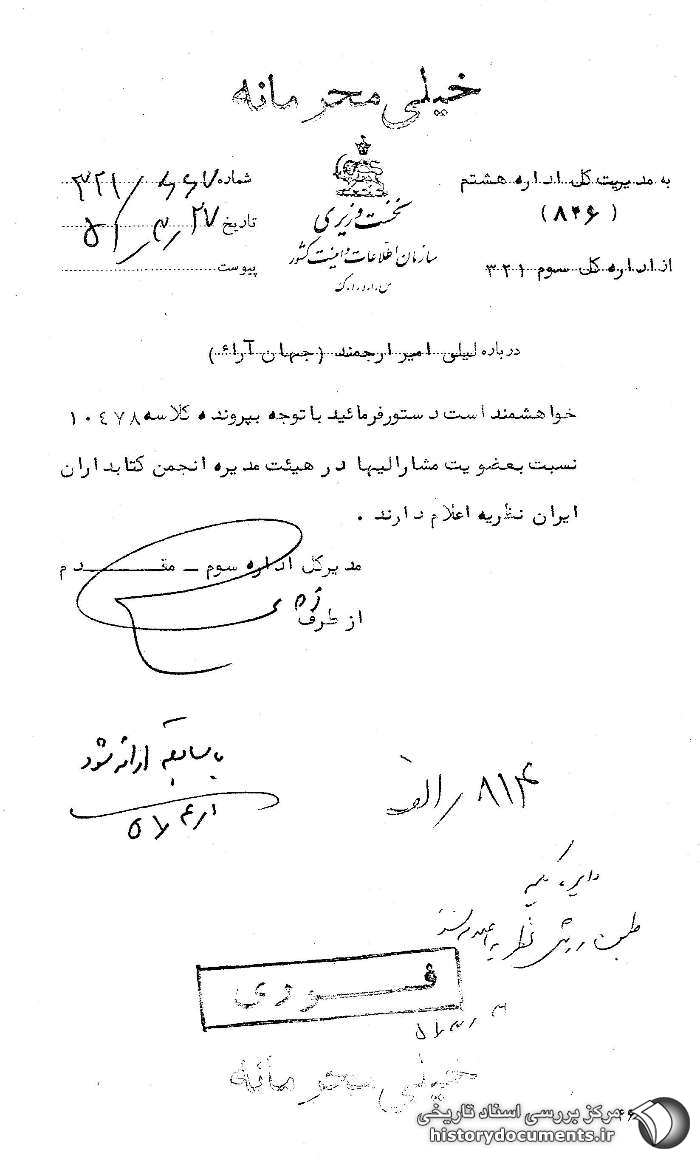 خیلی محرمانه
به مدیریت کل اداره هشتم
(۸۲۶)
از اداره کل سوم ۳۲۱
نخست وزیری
سازمان اطلاعات و امنیت کشور
س.ا.و.ا.ک
شماره ۳۲۱/
تاریخ
پیوست
درباره لیلی امیر ارجمند (جهان آرائی)
خواهشمند است دستورفرمائید با توجه بپرونده کلاسه ۱۰۴۷۸
نسبت بعضویت مشارالیها در هیئت مدیره انجمن کتابداران
ایران نظریه اعلام دارند .
مدیرکل اداره سوم ـ مقدم
از طرف
با سابقه ارائه شود
۸۱۴/الف
فوری
خیلی محرمانه
مرکز بررسی اسناد تاریخی
historydocuments.ir